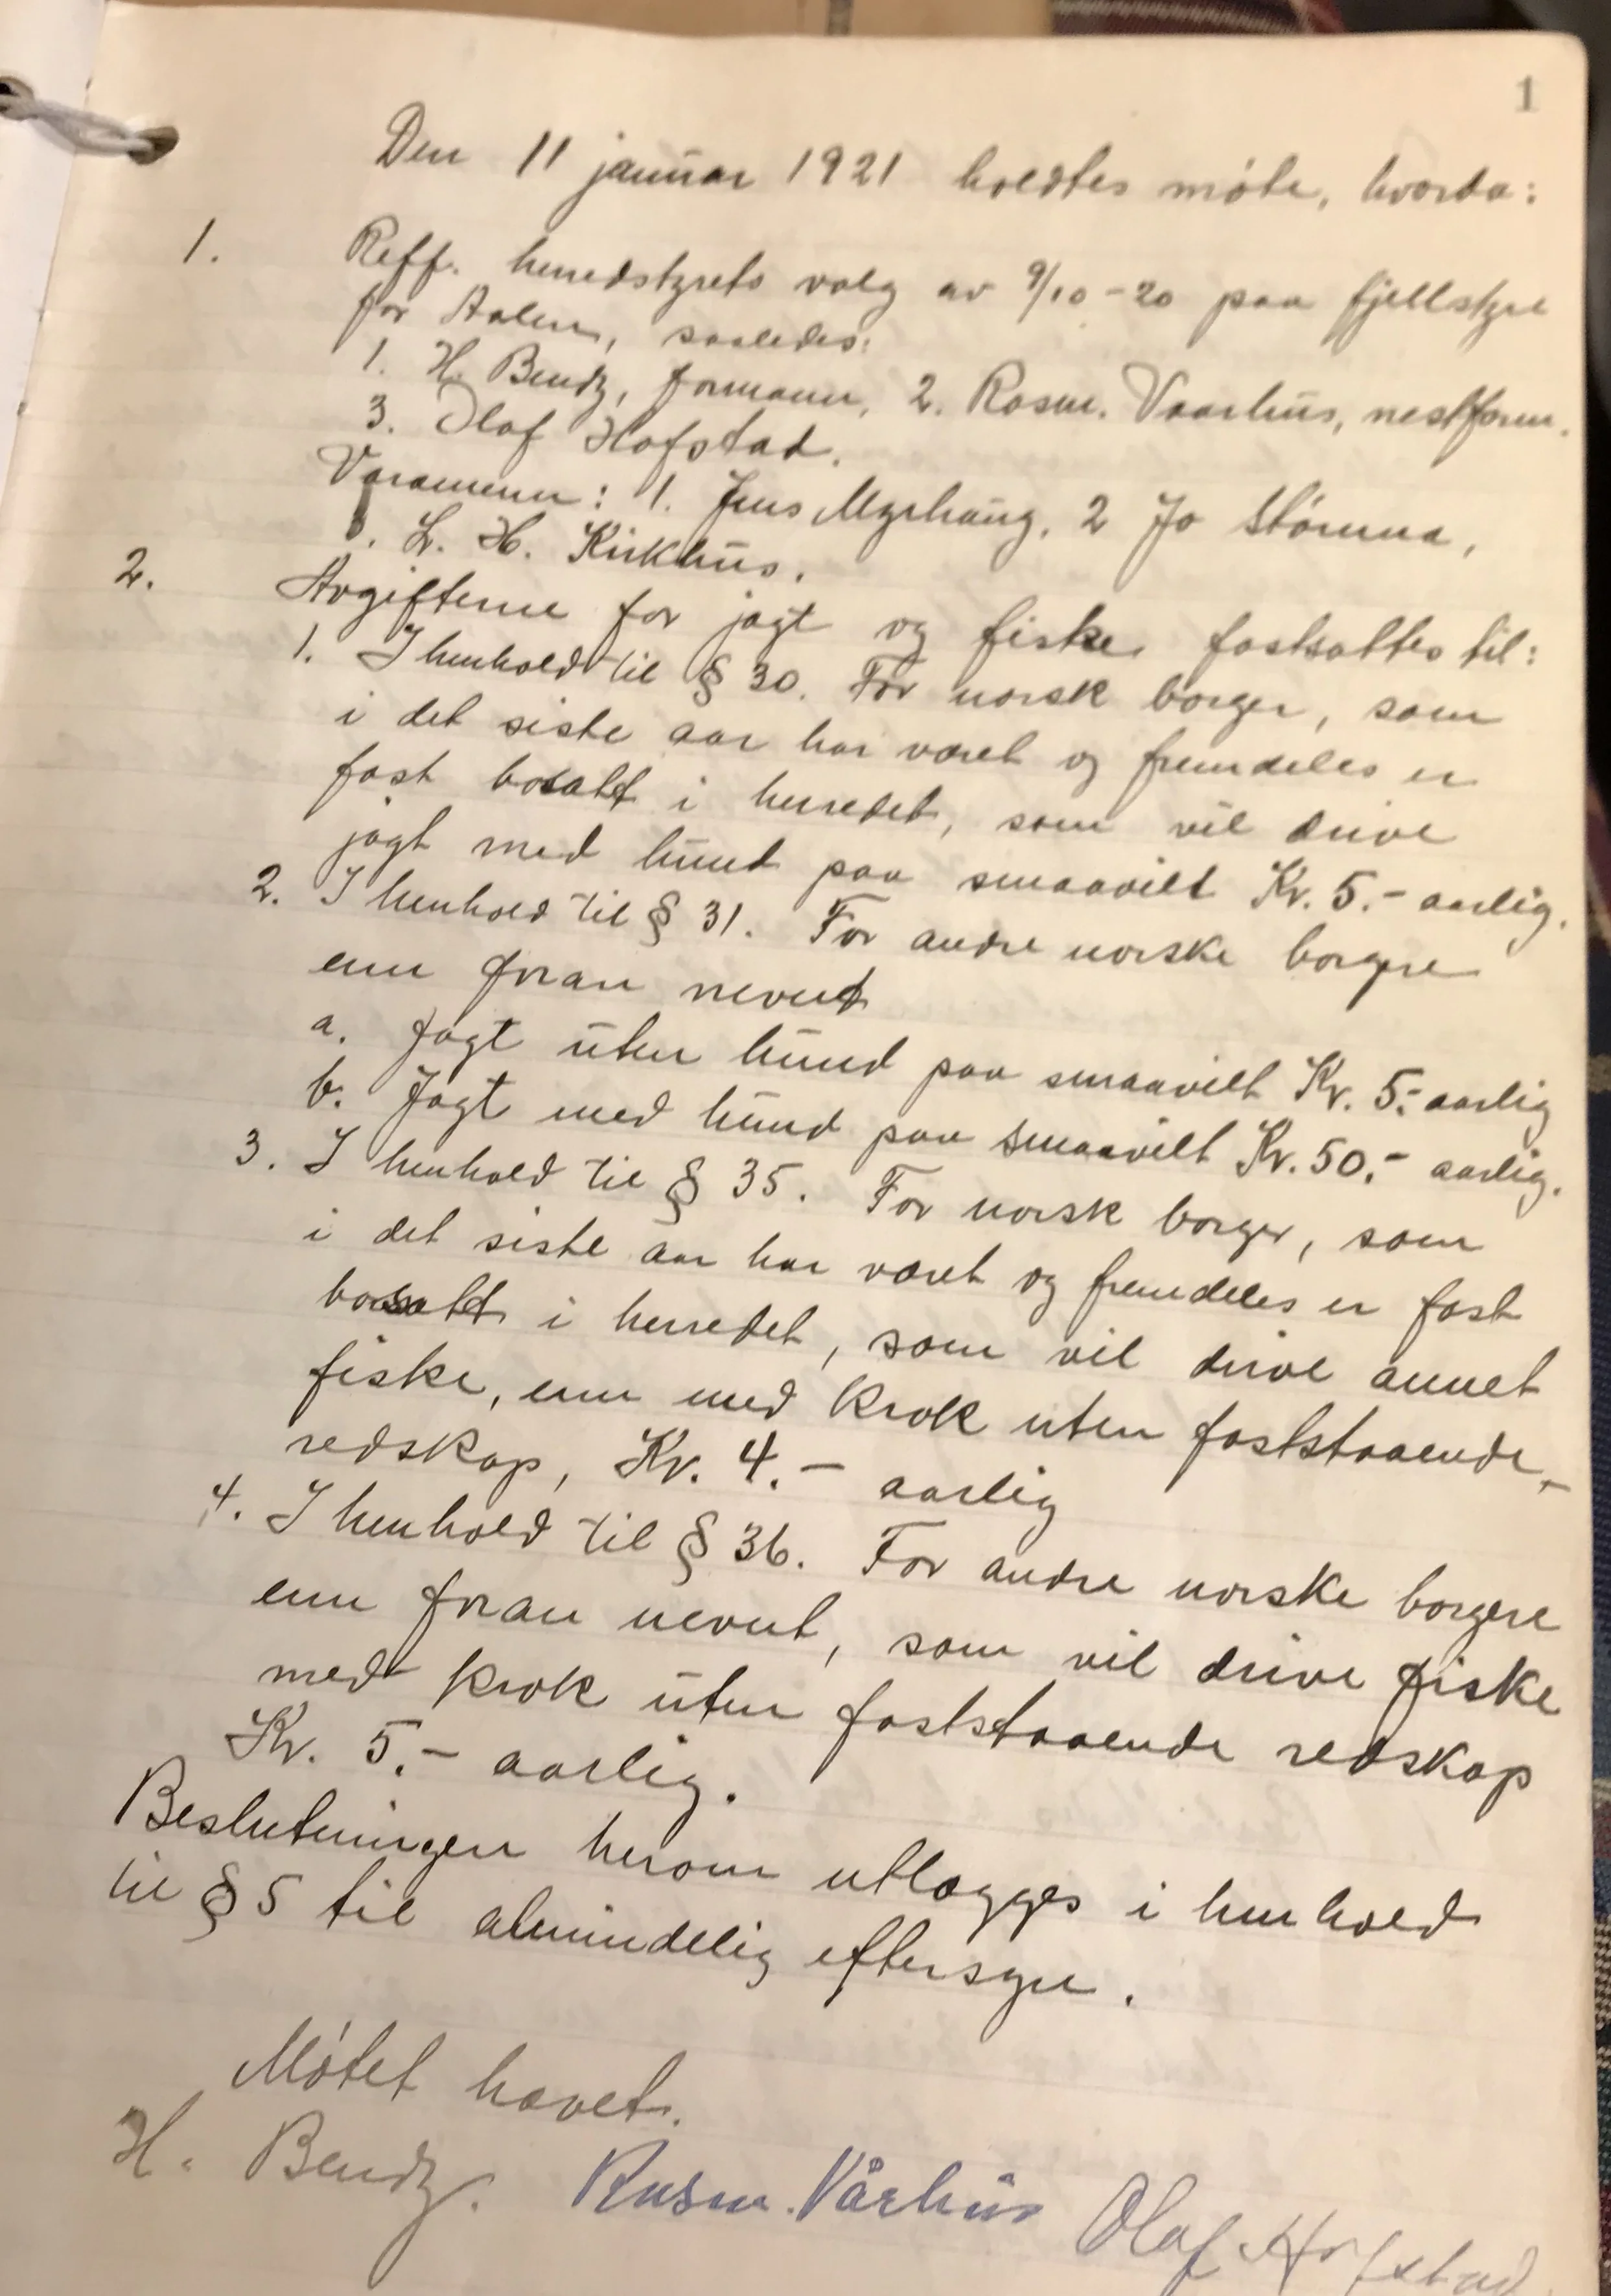 1
Den 11 januar 1921 holdtes møte, hvorda:
1. Reff. herredstyrets valg av 9/10-20 paa fjellstyre
for Aalen, saaledes:
1. H. Bendz, formann, 2. Rasm. Vaarhus, nestform.
3. Olaf Hofstad.
Varamenn: 1. Jens Myrhaug, 2 Jo Stømna,
3. L. H. Kirkhus.
2. Avgifterne for jagt og fiske fastsattes til:
1. I henhold til § 30. For norsk borger, som
i det siste aar har været og fremdeles er
fast bosatt i herredet, som vil drive
jagt med hund paa smaavilt Kr. 5.- aarlig.
2. I henhold til § 31. For andre norske borgere
enn foran nevnt
a. Jagt uten hund paa smaavilt Kr. 5.- aarlig
b. Jagt med hund paa smaavilt Kr. 50.- aarlig.
3. I henhold til § 35. For norsk borger, som
i det siste aar har været og fremdeles er fast
bosatt i herredet, som vil drive annet
fiske, enn med krok uten faststaaende
redskap, Kr. 4.- aarlig
4. I henhold til § 36. For andre norske borgere
enn foran nevnt, som vil drive fiske
med krok uten faststaaende redskap
Kr. 5.- aarlig.
Beslutningen herom utlægges i henhold
til § 5 til almindelig eftersyn.
Møtet hævet.
H. Bendz. Rasm. Vårhus Olaf Hofstad